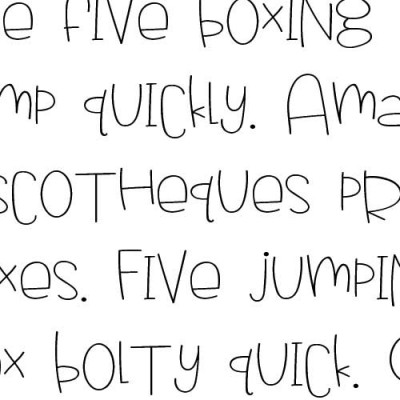 e five boxing
mp quickly. Ama
scotheques pr
xes. Five jumpin
ox bolty quick.